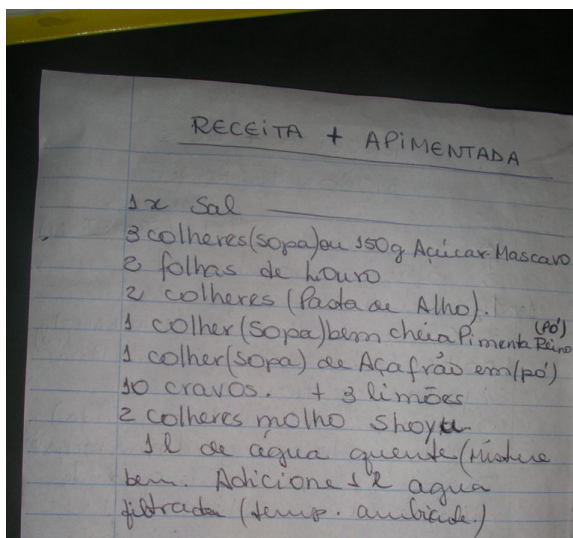 RECEITA + APIMENTADA
1x Sal
3 colheres(sopa)ou 150g Açúcar Mascavo
2 folhas de Louro
2 colheres (Pasta de Alho).
1 colher(sopa)bem cheia Pimenta Reino (Pó)
1 colher(sopa) de Açafrão em(pó)
10 cravos. + 3 limões
2 colheres molho Shoyu
1l de água quente(Misture
bem. Adicione 1l agua
filtrada (temp. ambiente.)